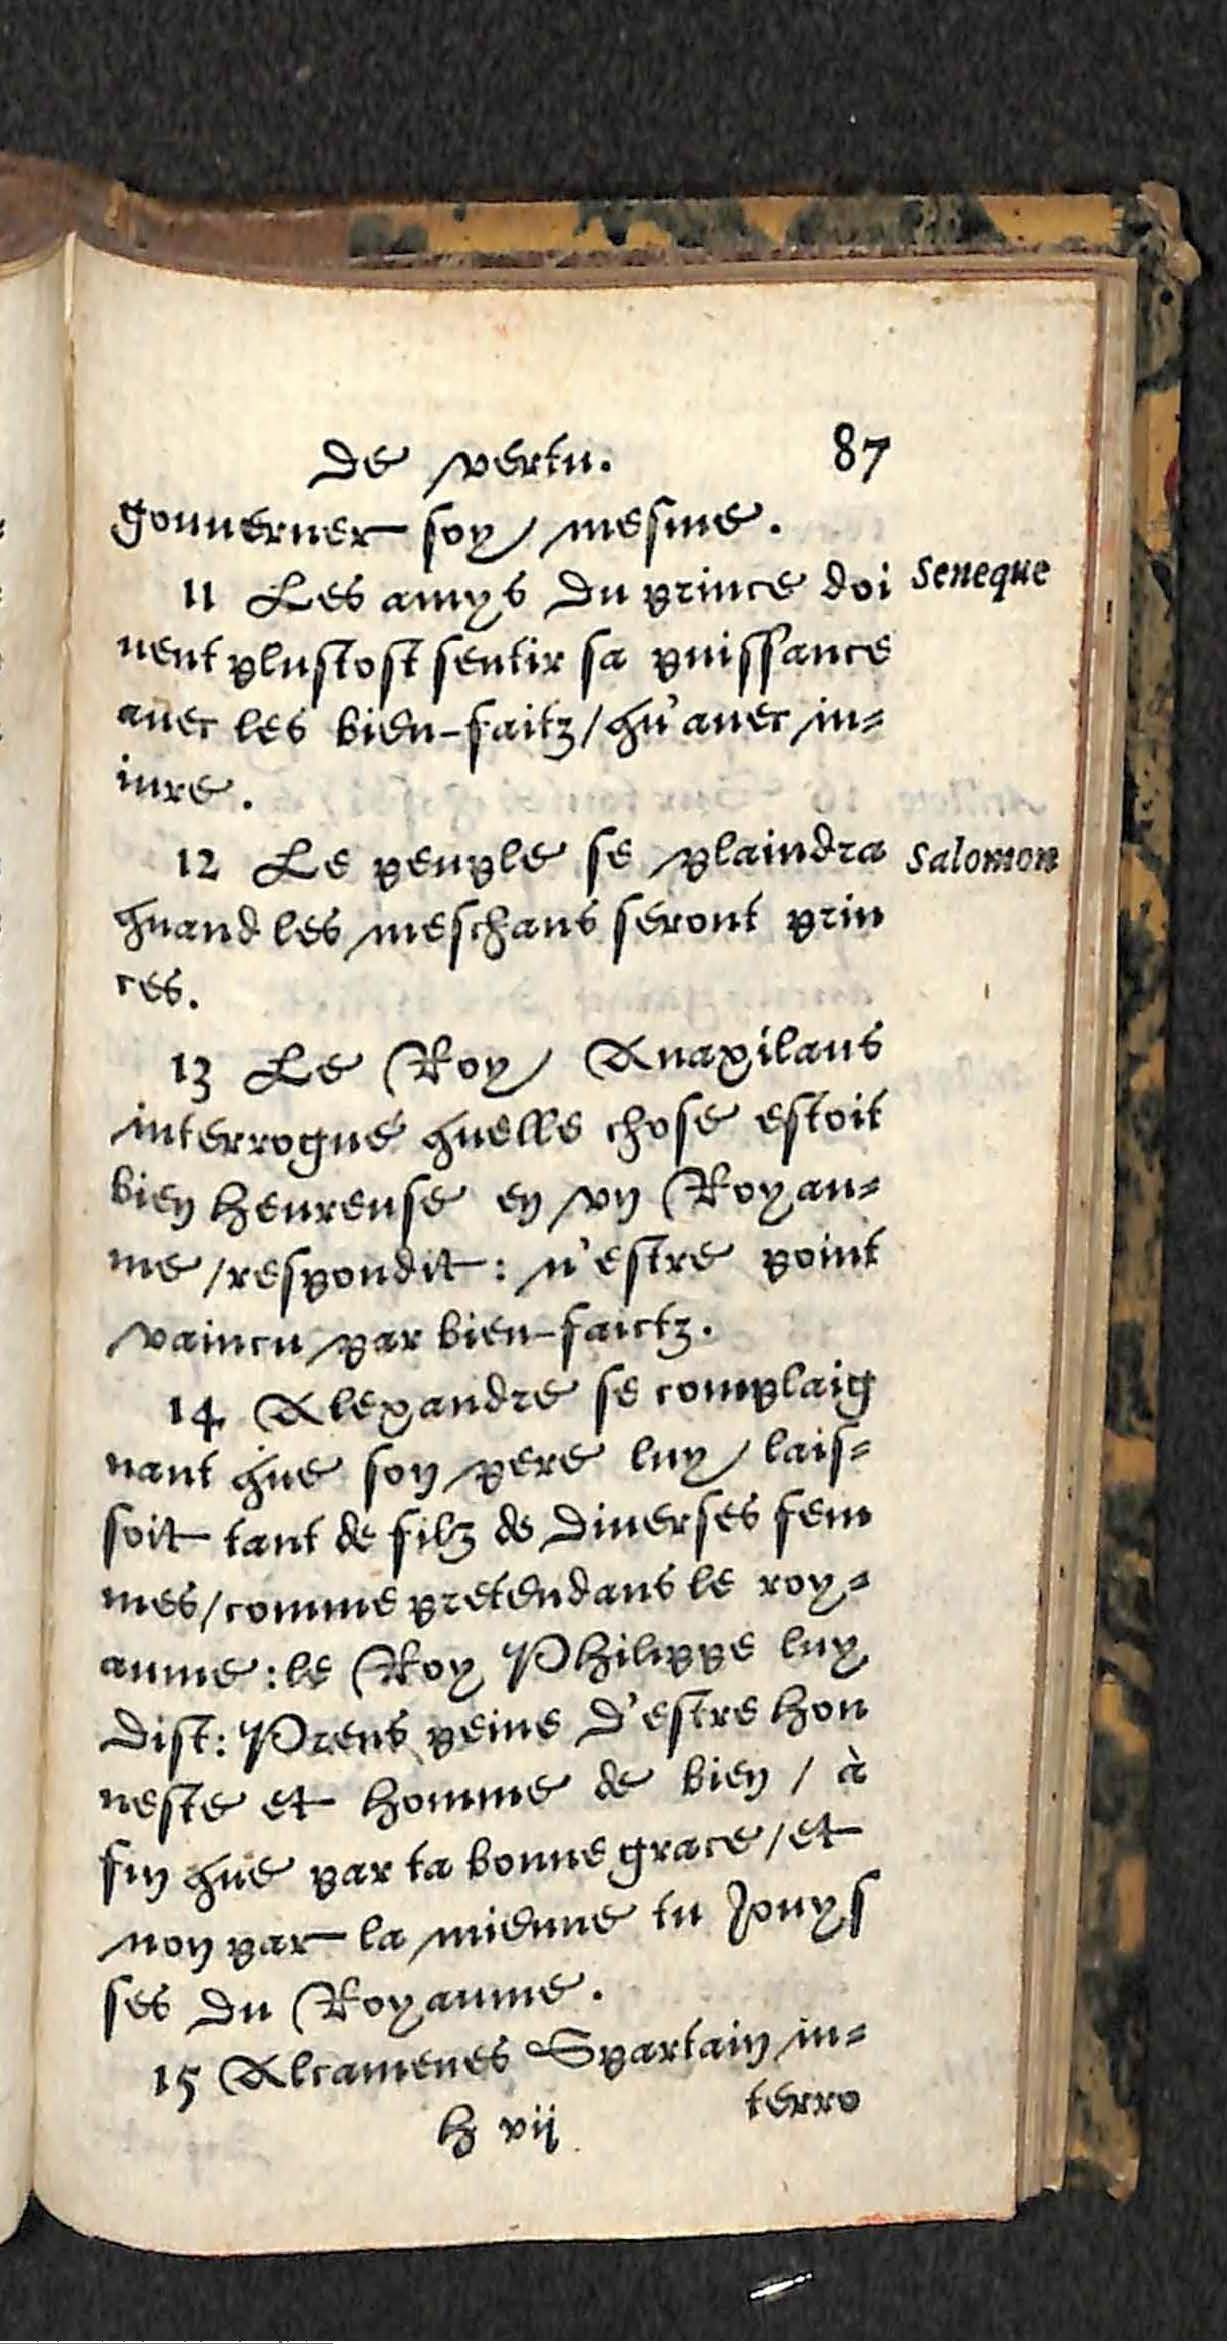 de vertu. 87
gouuerner soy mesme.
11 Les amys du prince doi Seneque
uent plustost sentir sa puissance
auec les bien-faitz/qu'auec in=
iure.
12 Le peuple se plaindra Salomon
quand les meschans seront prin
ces.
13 Le Roy Anaxilaus
interrogué quelle chose estoit
bien heureuse en vn Royau=
me/respondit: n'estre point
vaincu par bien-faictz.
14 Alexandre se complaig
nant que son pere luy lais=
soit tant de filz de diuerses fem
mes/comme pretendans le roy=
aume: le Roy Philippe luy
dist: Prens peine d'estre hon
neste et homme de bien/à
fin que par ta bonne grace/et
non par la mienne tu Jouys
ses du Royaume.
15 Alcamenes Spartain in=
terro
h vij